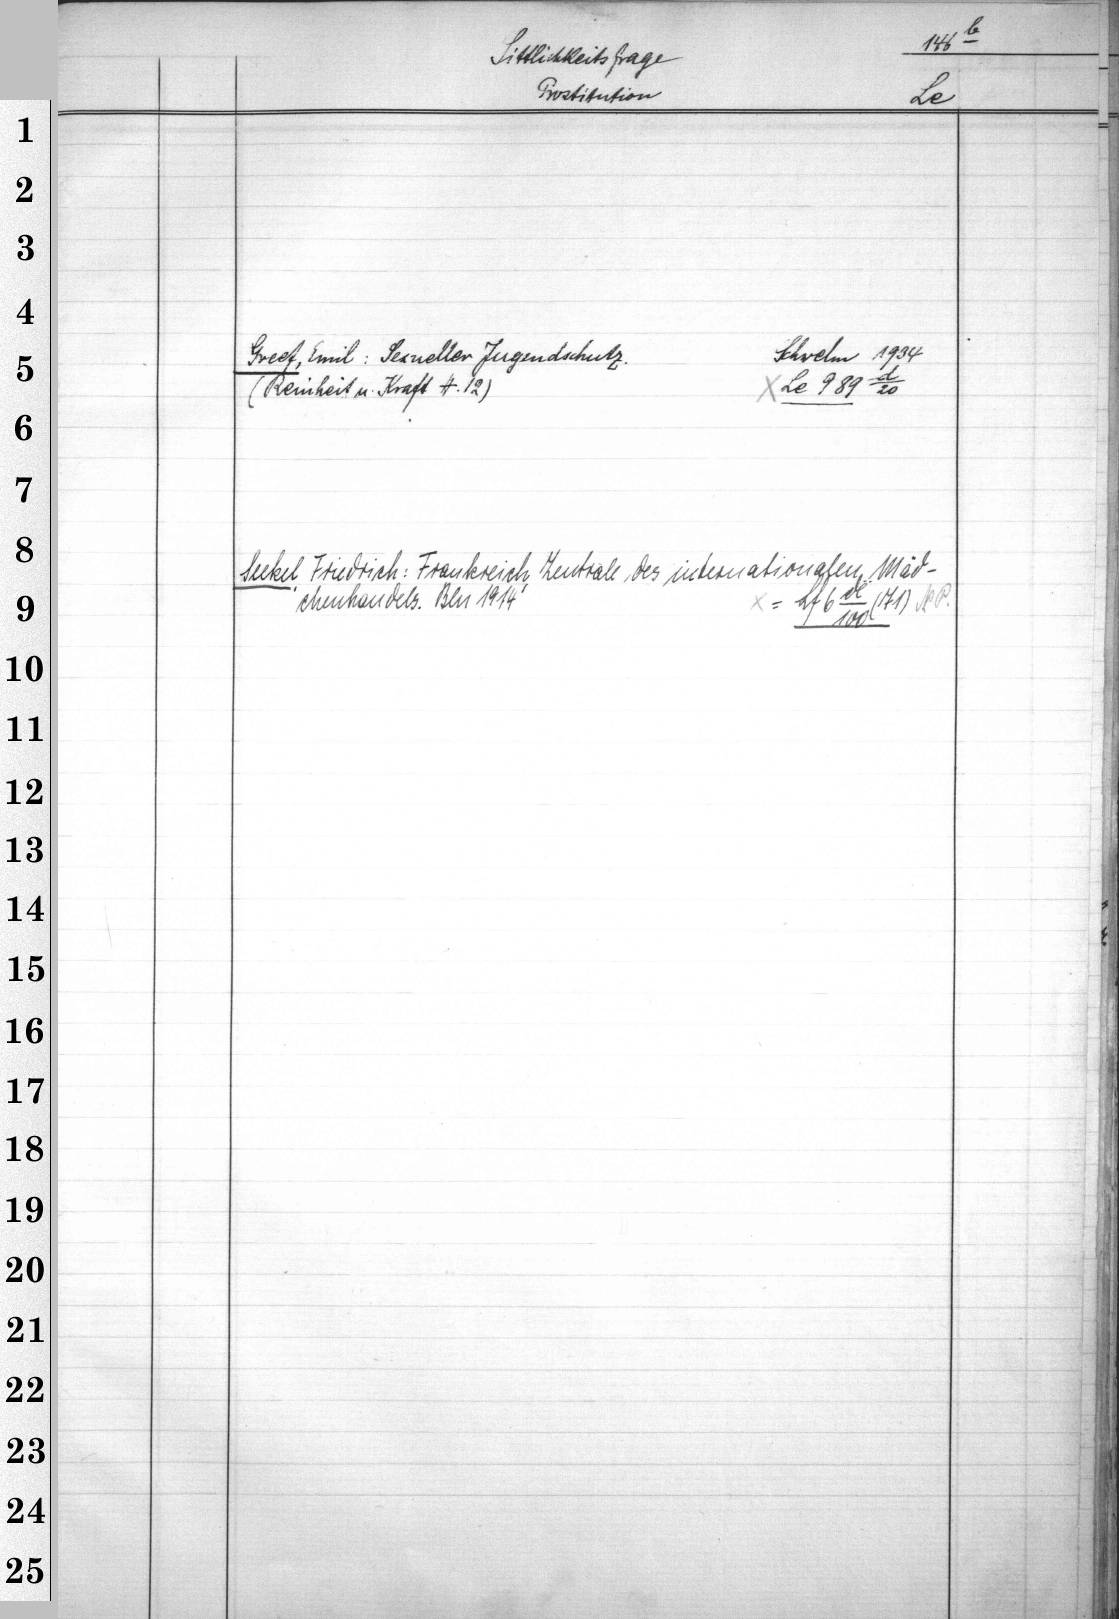 146 b
Sittlichkeitsfrage
Prostitution Le
1
2
3
4
Greef, Emil: Sexueller Jugendschutz. Schwelm 1934
5
(Reinheit u. Kraft H. 12) X Le 989 d/20
6
7
8
Seekel, Friedrich: Frankreich, Zentrale des internationalen Mäd-
9 chenhandels. Bln 1914 x = Lf 6 /100 (171)
10
11
12
13
14
15
16
17
18
19
20
21
22
23
24
25